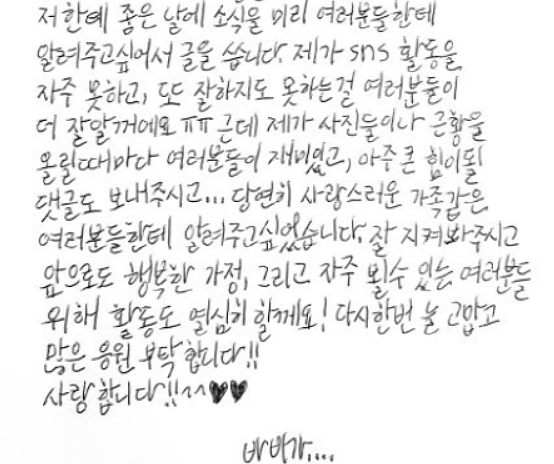 저한테 좋은 날에 소식을 미리 여러분들한테
알려주고싶어서 글을 씁니다. 제가 sns 활동을
자주 못하고, 또도 잘하지도 못하는걸 여러분들이
더 잘알꺼에요 ㅠㅠ 근데 제가 사진들이나 근황을
올릴때마다 여러분들이 재미있고, 아주큰 힘이될
댓글도 보내주시고... 당연히 사랑스러운 가족같은
여러분들한테 알려주고싶었습니다. 잘 지켜봐주시고
앞으로도 행복한 가정, 그리고 자주 뵐수 있는 여러분들
위해 활동도 열심히 할께요! 다시한번 늘 고맙고
많은 응원 부탁합니다!!
사랑합니다!!^^♥♥
바비가...